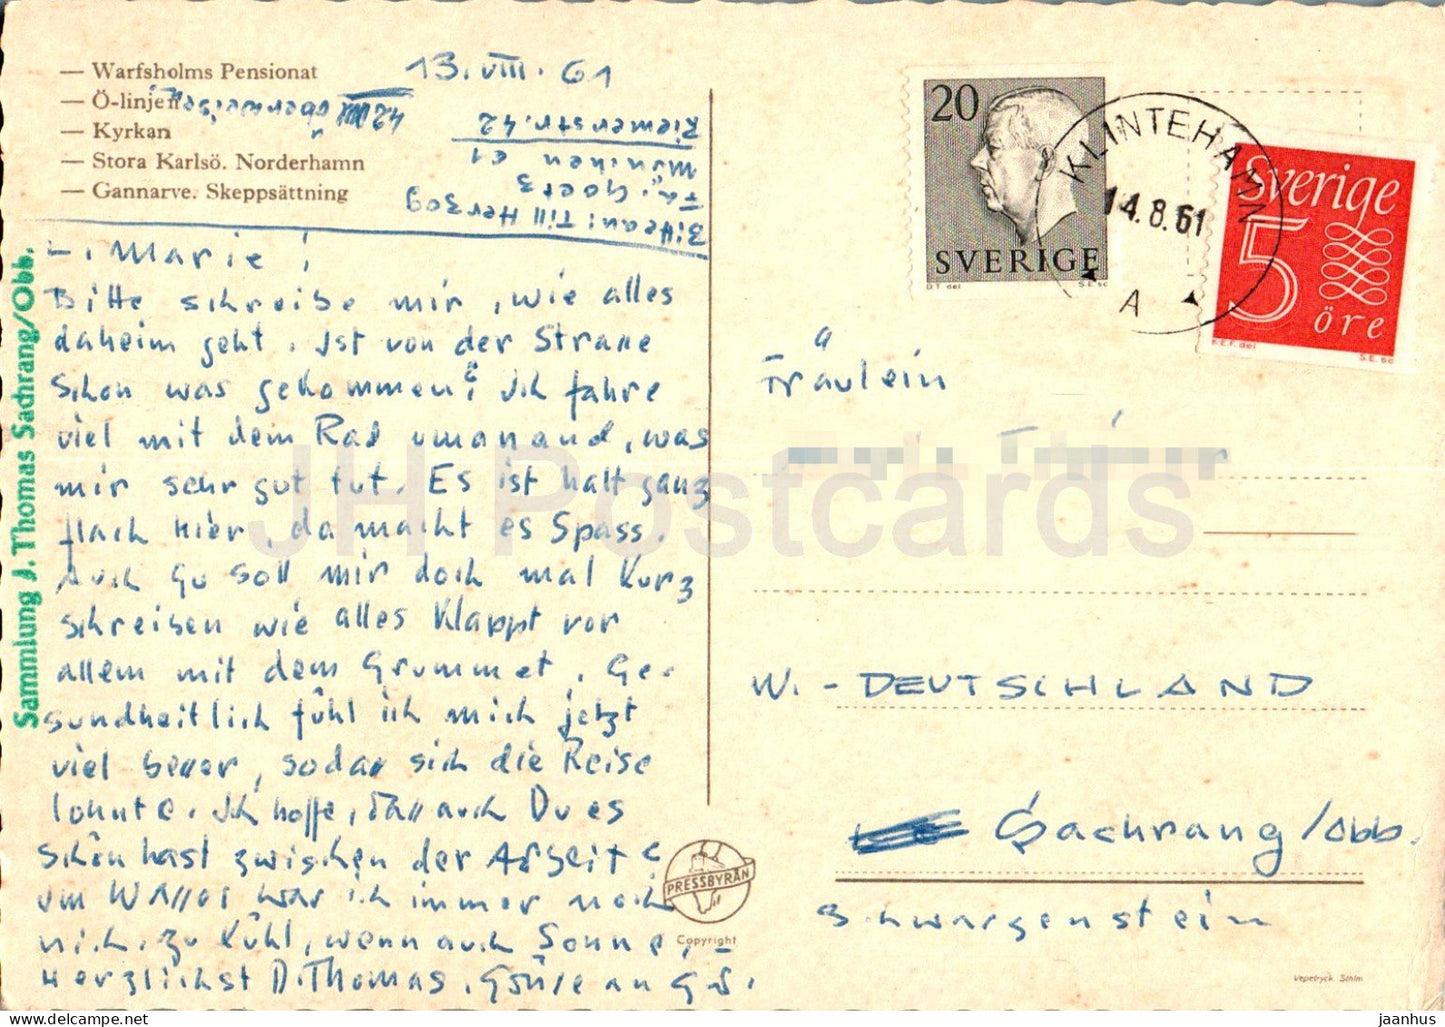 — Warfsholms Pensionat
— Ö-linjen
— Kyrkan
— Stora Karlsö. Norderhamn
— Gannarve. Skeppsättning
13. VIII. 61
Bitte an: Till Herzog
Fa. Goetz
München 61
Riemerstr. 42
L. Marie!
Bitte schreibe mir, wie alles
daheim geht. Ist von der Strasse
schon was gekommen? Ich fahre
viel mit dem Rad umanand, was
mir sehr gut tut. Es ist halt ganz
flach hier, da macht es Spass.
Auch Gu soll mir doch mal kurz
schreiben wie alles klappt vor
allem mit dem Grummet. Ge-
sundheitlich fühl ich mich jetzt
viel besser, sodass sich die Reise
lohnte. Ich hoffe, dass auch Du es
schön hast zwischen der Arbeit?
Im Wasser war ich immer noch
nicht. zu kühl, wenn auch Sonne,
Herzlichst D. Thomas. Grüsse an Gu.
Sammlung J. Thomas Sachrang/Obb.
20
SVERIGE
D.T. del S.E. sc
KLINTEHAMN
14.8.61
A
Sverige
5
öre
K.E.F. del S.E. sc
Fräulein
W. - DEUTSCHLAND
Sachrang/Obb.
Schwarzenstein
PRESSBYRÅN
Copyright
Vepetryck. Sthlm
JH Postcards
delcampe.net
jaanhus